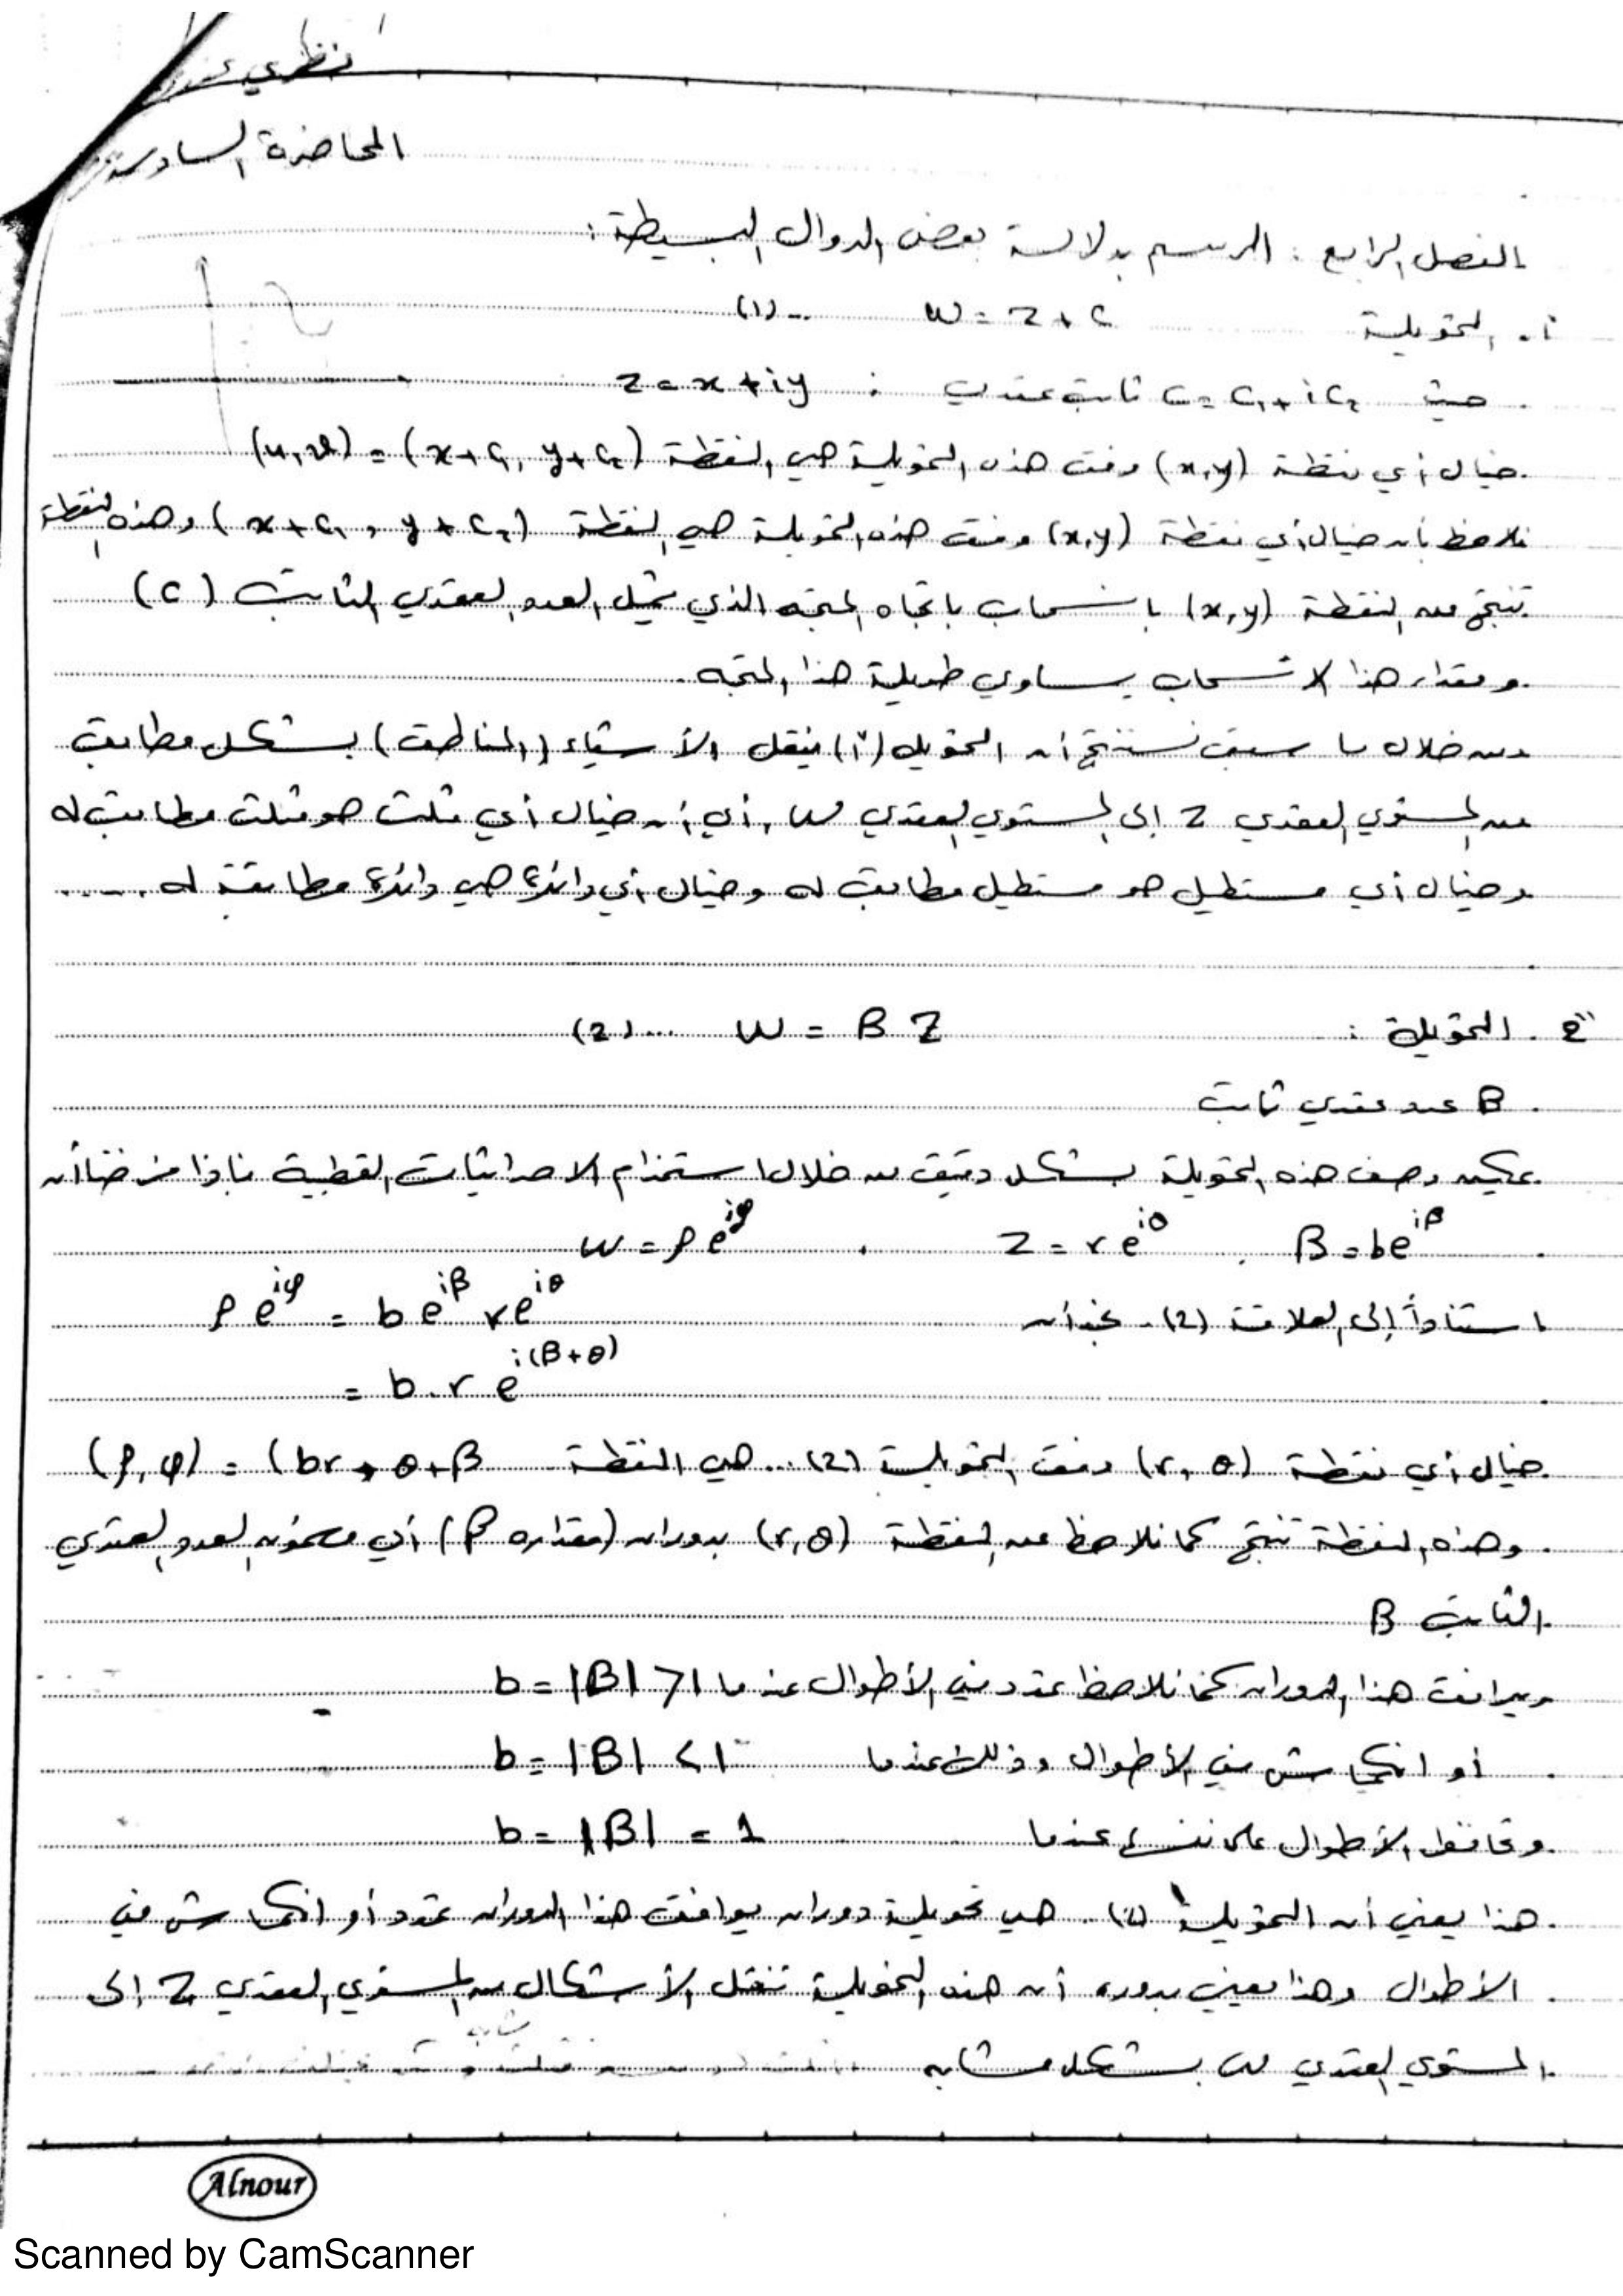 نظري
المحاضرة السادسة
الفصل الرابع : الرسم بدلالة بعض الدوال البسيطة :
1. التحويلة w = z + c ... (1)
حيث c = c₁ + i c₂ ثابت عقدي : z = x + iy
خيال أي نقطة (x,y) وفق هذه التحويلة هي النقطة (u,v) = (x+c₁, y+c₂)
نلاحظ بأن خيال أي نقطة (x,y) وفق هذه التحويلة هي النقطة (x+c₁, y+c₂) وهذه النقطة
تنتج من النقطة (x,y) بانسحاب باتجاه المتجه الذي يمثل العدد العقدي الثابت (c)
ومقدار هذا الانسحاب يساوي طويلة هذا المتجه.
ومن خلال ما سبق نستنتج أن التحويل (1) ينقل الأشياء (المناطق) بشكل مطابق
من المستوي العقدي z إلى المستوي العقدي w، أي أن خيال أي مثلث هو مثلث مطابق له
وخيال أي مستطيل هو مستطيل مطابق له وخيال أي دائرة هي دائرة مطابقة له .....
2". التحويلة : w = B z ... (2)
B عدد عقدي ثابت
يمكن وصف هذه التحويلة بشكل دقيق من خلال استخدام الاحداثيات القطبية فإذا فرضنا أن
B = be^{iβ} . z = re^{iθ} . w = ρe^{iφ}
استناداً إلى العلاقة (2) نجد أن ρe^{iφ} = be^{iβ} re^{iθ}
= b.r e^{i(β+θ)}
خيال أي نقطة (r, θ) وفق التحويلة (2) ... هي النقطة (ρ, φ) = (br, θ+β
وهذه النقطة تنتج كما نلاحظ من النقطة (r,θ) بدوران (مقداره β) أي العدد العقدي
الثابت B
ويرافق هذا الدوران كما نلاحظ تمدد في الأطوال عندما b = |B| > 1
أو انكماش في الأطوال وذلك عندما b = |B| < 1
وتحافظ الأطوال على نفسها عندما b = |B| = 1
هذا يعني أن التحويلة (2) هي تحويلة دوران يرافق هذا الدوران تمدد أو انكماش في
الأطوال وهذا يعني بدوره أن هذه التحويلة تنقل الأشكال من المستوي العقدي z إلى
المستوي العقدي w بشكل مشابه
Alnour
Scanned by CamScanner